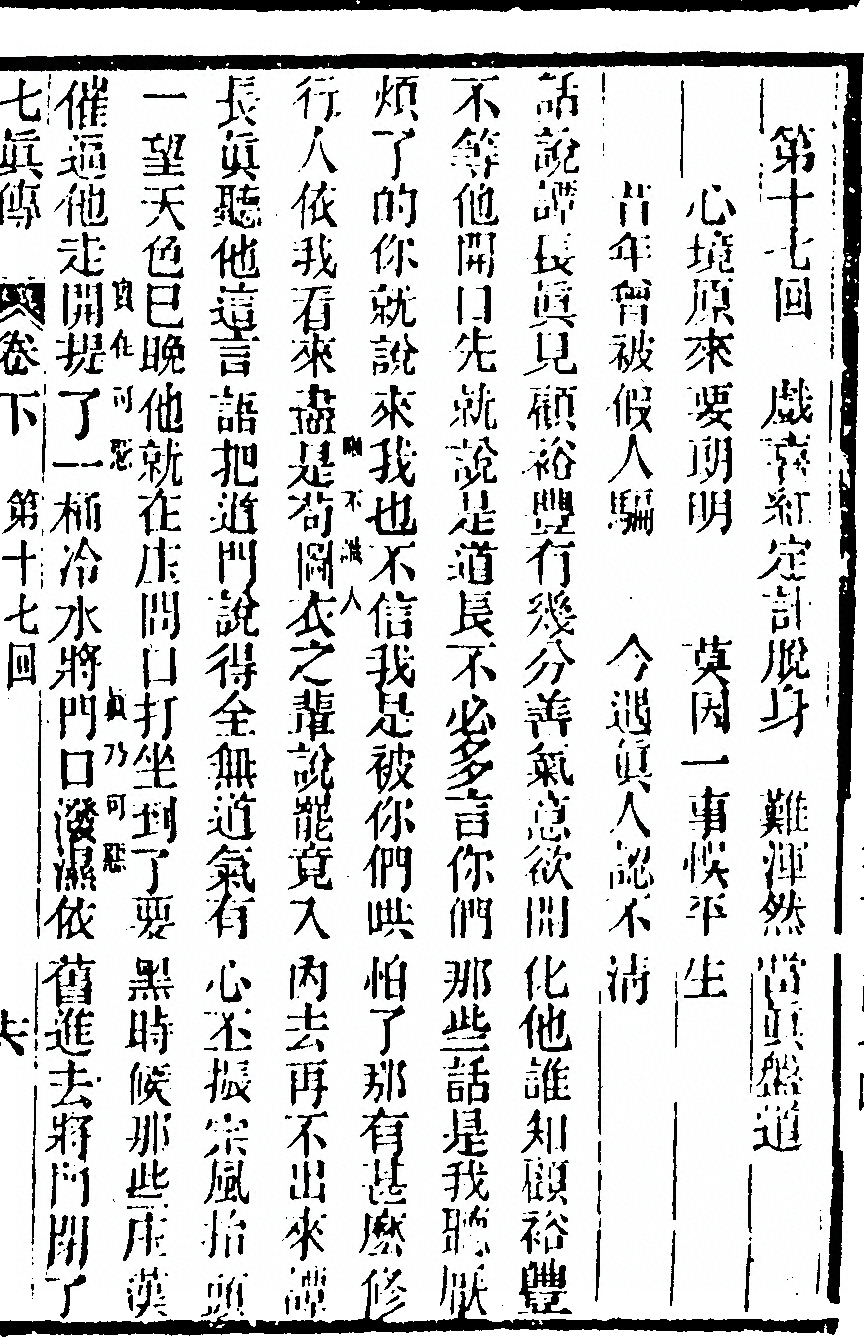 第十七回 戲喜紅定計脫身 難渾然當眞盤道
心境原來要朗明 莫因一事悞平生
昔年曾被假人騙 今遇眞人認不淸
話說譚長眞見顧裕豐有幾分善氣意欲開化他誰知顧裕豐
不等他開口先就說是道長不必多言你們那些話是我聽厭
煩了的你就說來我也不信我是被你們哄怕了那有甚麽修
行人依我看來盡是苟圖衣之輩說罷竟入內去再不出來譚
剛不識人
長眞聽他這言語把道門說得全無道氣有心丕振宗風抬頭
一望天色已晚他就在庄間口打坐到了要黑時候那些庄漢
實在可惡
眞乃可惡
催逼他走開提了一桶冷水將門口潑濕依舊進去將門閉了
七眞傳 卷下 第十七回